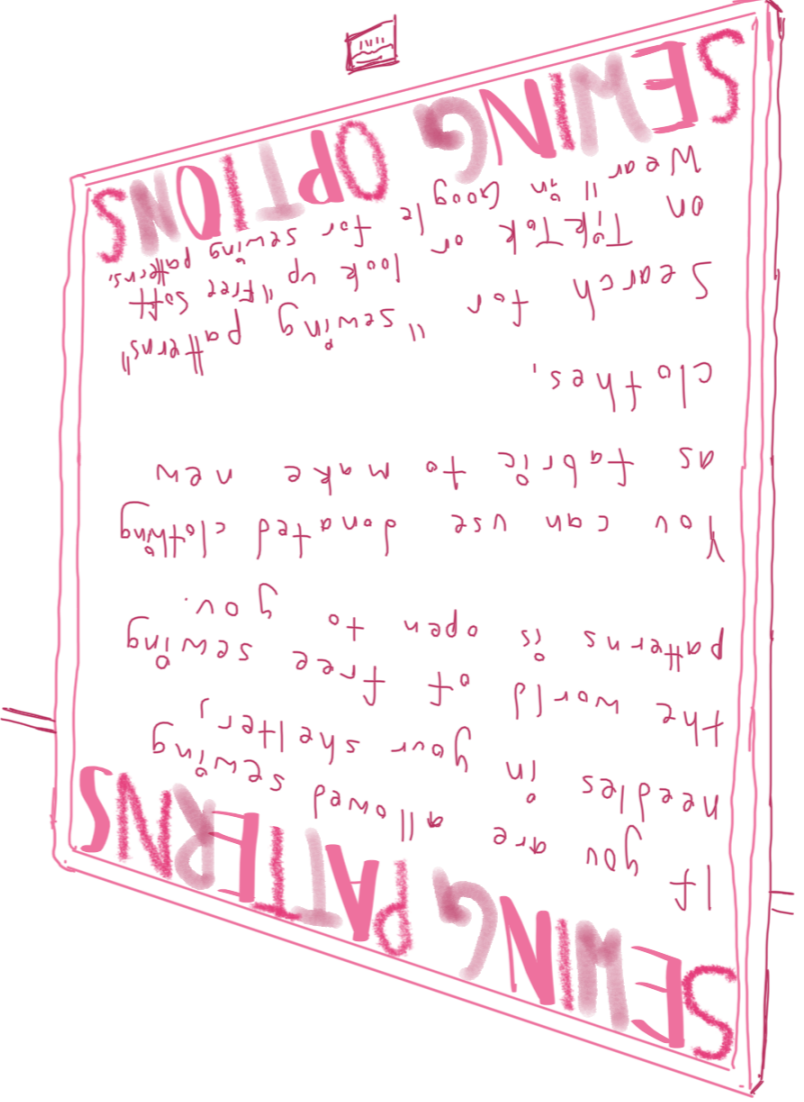 SEWING PATTERNS
If you are allowed sewing
needles in your shelter,
the world of free sewing
patterns is open to you.
You can use donated clothing
as fabric to make new
clothes.
Search for "sewing patterns"
on TikTok or look up "free soft
Wear" in Google for sewing patterns.
SEWING OPTIONS